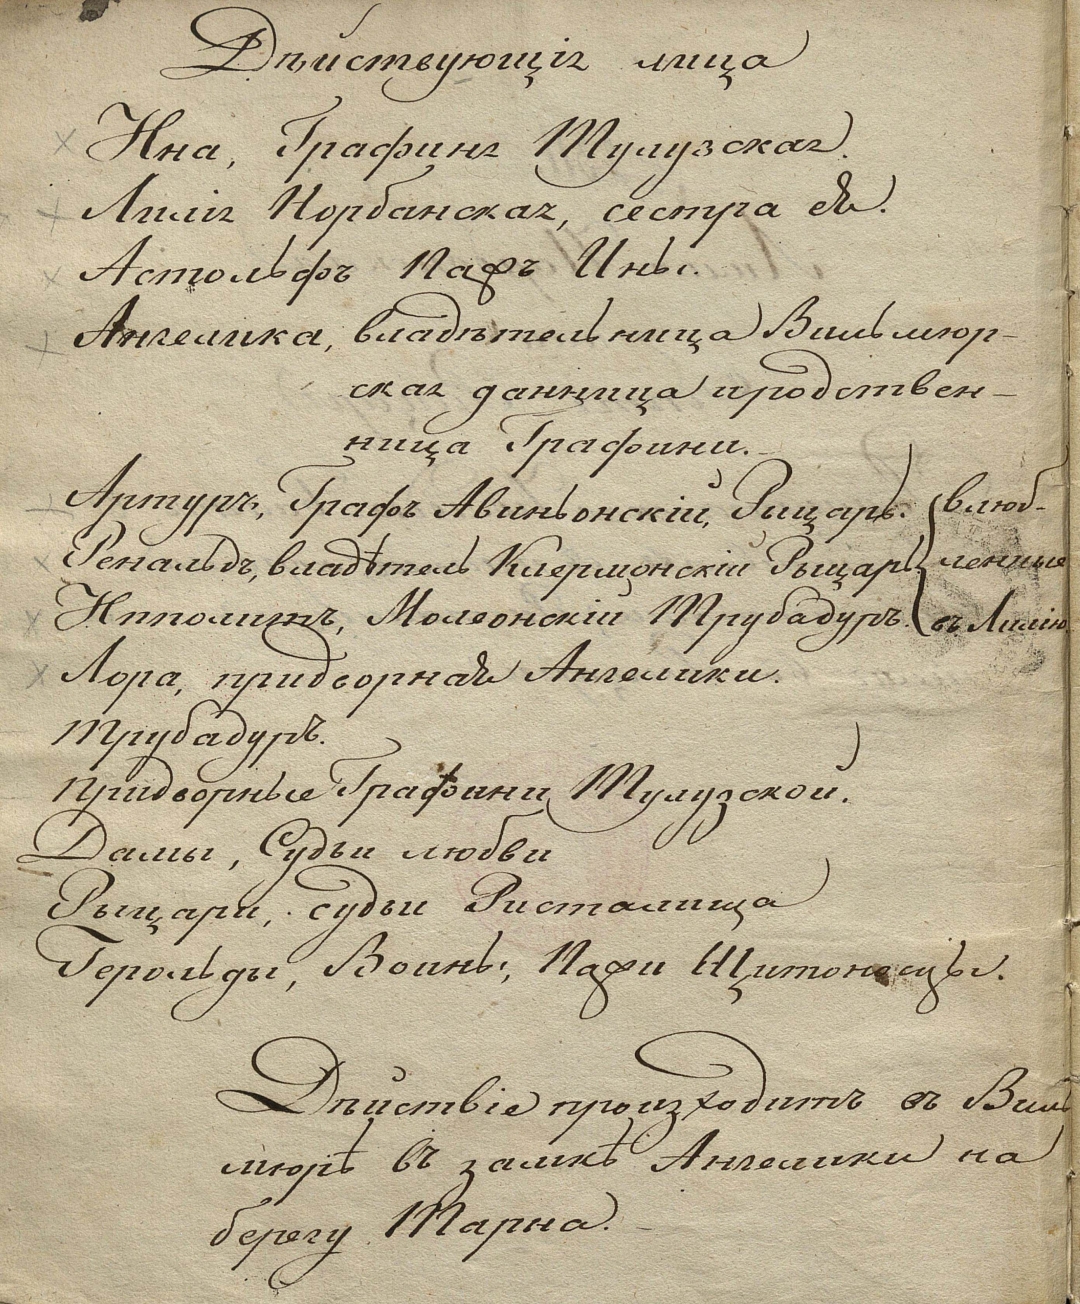 Дѣйствующія лица
Ина, Графиня Тулузская.
Лилія Норбанская, сестра ея.
Астольфъ Пажъ Ины.
Ангелика, владѣтельница Вильмюр-
ская данница и родствен-
ница Графини.
Артуръ, Графъ Авиньонскій, Рыцарь. } влюб-
Ренальдъ, владѣтель Клермонскій Рыцарь } ленные
Ипполитъ, Молеонскій Трубадуръ. } въ Лилію
Лора, придворная Ангелики.
Трубадуръ.
Придворные Графини Тулузской.
Дамы, Судьи любви
Рыцари, судьи Ристалища
Герольды, Воины, Пажи Щитоносцы.
Дѣйствіе произходитъ въ Виль
мюрѣ въ замкѣ Ангелики на
берегу Тарна.